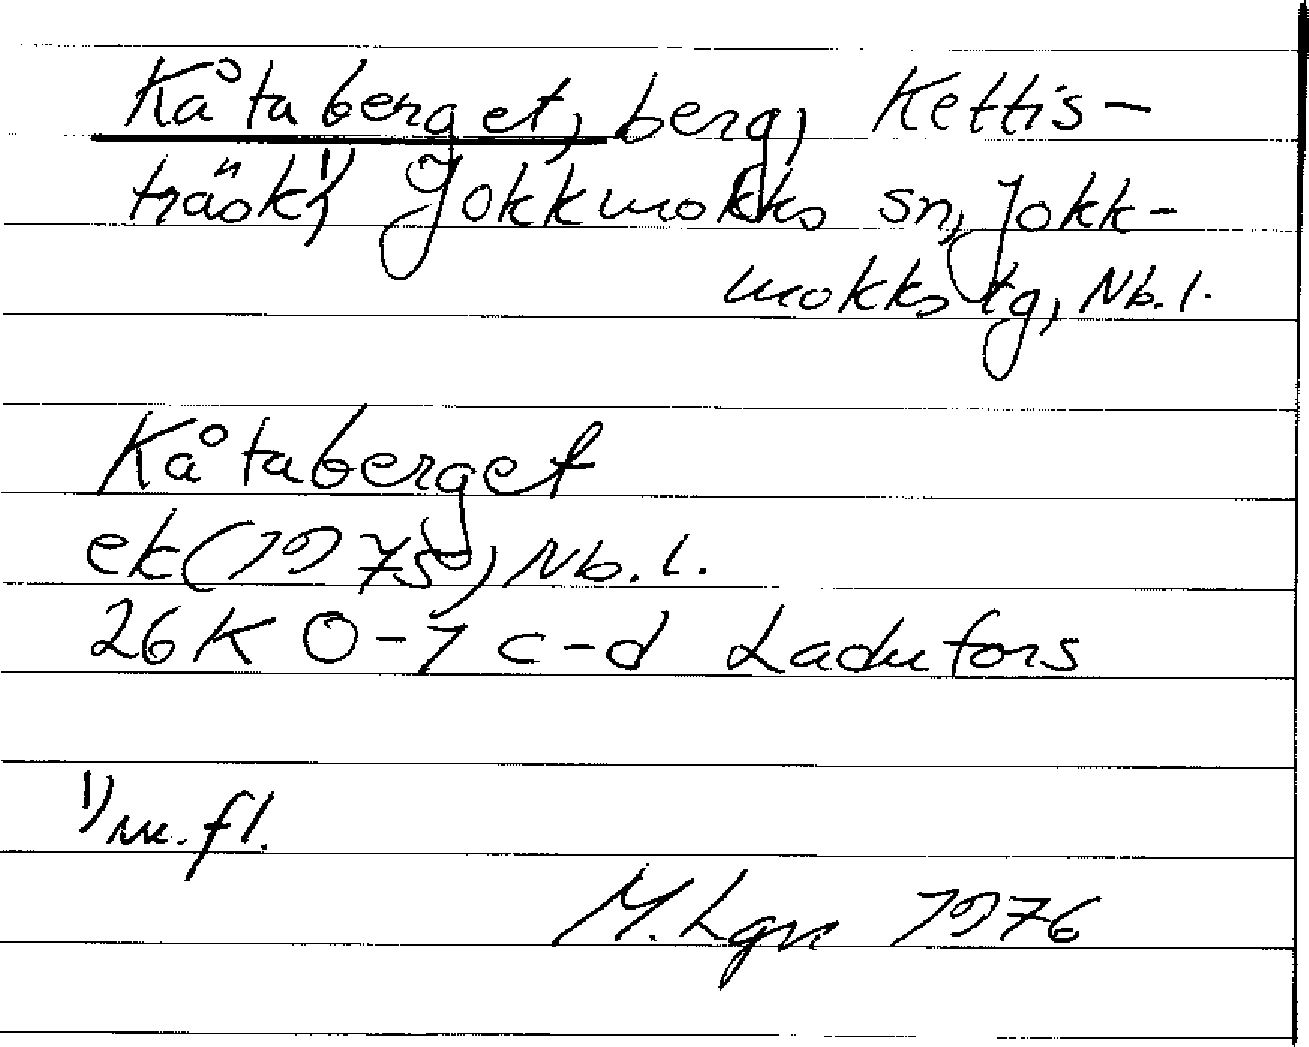 Kåtaberget, berg, Kettis-
träsk¹⁾, Jokkmokks sn, Jokk-
mokks tg, Nb. l.
Kåtaberget
ek (1975), Nb. l.
26K 0-1 c-d Ladufors
¹⁾ m. fl.
M. Lgn 1976